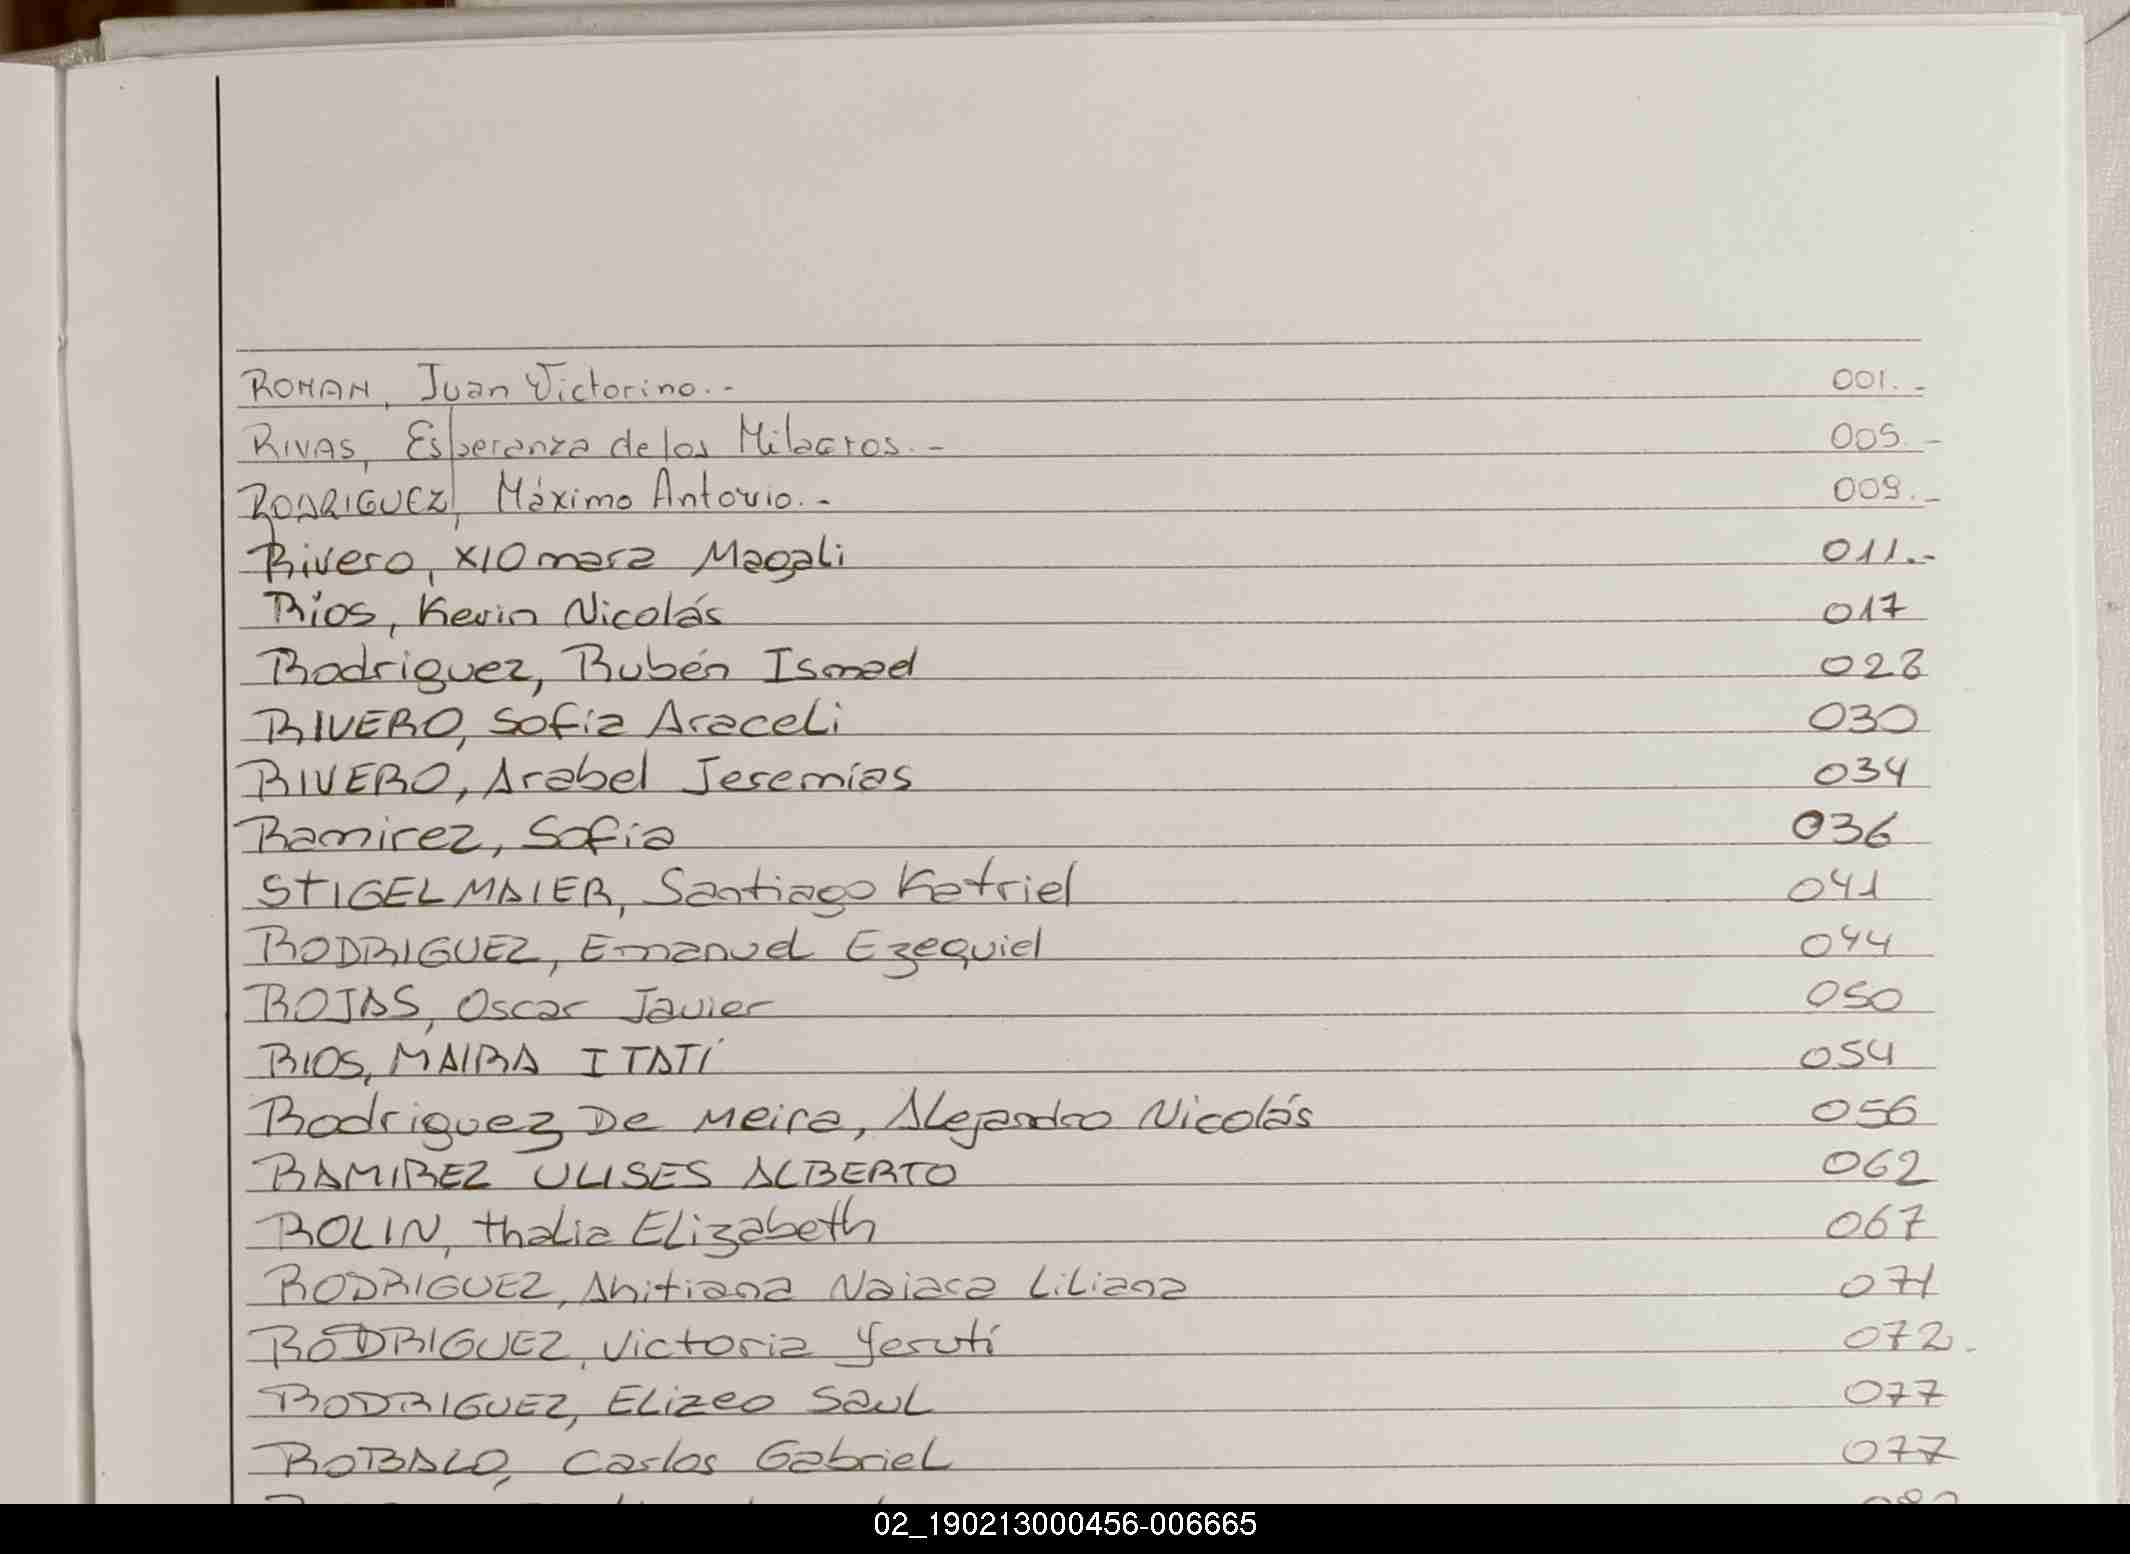 ROMAN, Juan Victorino.- 001.-
RIVAS, Esperanza de los Milagros.- 005.-
RODRIGUEZ, Máximo Antonio.- 009.-
Rivero, XIOmara Magali 011.-
Ríos, Kevin Nicolás 017
Rodriguez, Rubén Ismael 028
RIVERO, Sofia Araceli 030
RIVERO, Arabel Jeremías 034
Ramirez, Sofía 036
STIGELMAIER, Santiago Katriel 041
RODRIGUEZ, Emanuel Ezequiel 044
ROJAS, Oscar Javier 050
RIOS, MAIRA ITATÍ 054
Rodriguez De Meira, Alejandro Nicolás 056
RAMIREZ ULISES ALBERTO 062
ROLIN, thalia Elizabeth 067
RODRIGUEZ, Ahitiana Naiara Liliana 071
RODRIGUEZ, Victoria Yerutí 072.
RODRIGUEZ, Elizeo Saul 077
ROBALO, Carlos Gabriel 077
02_190213000456-006665